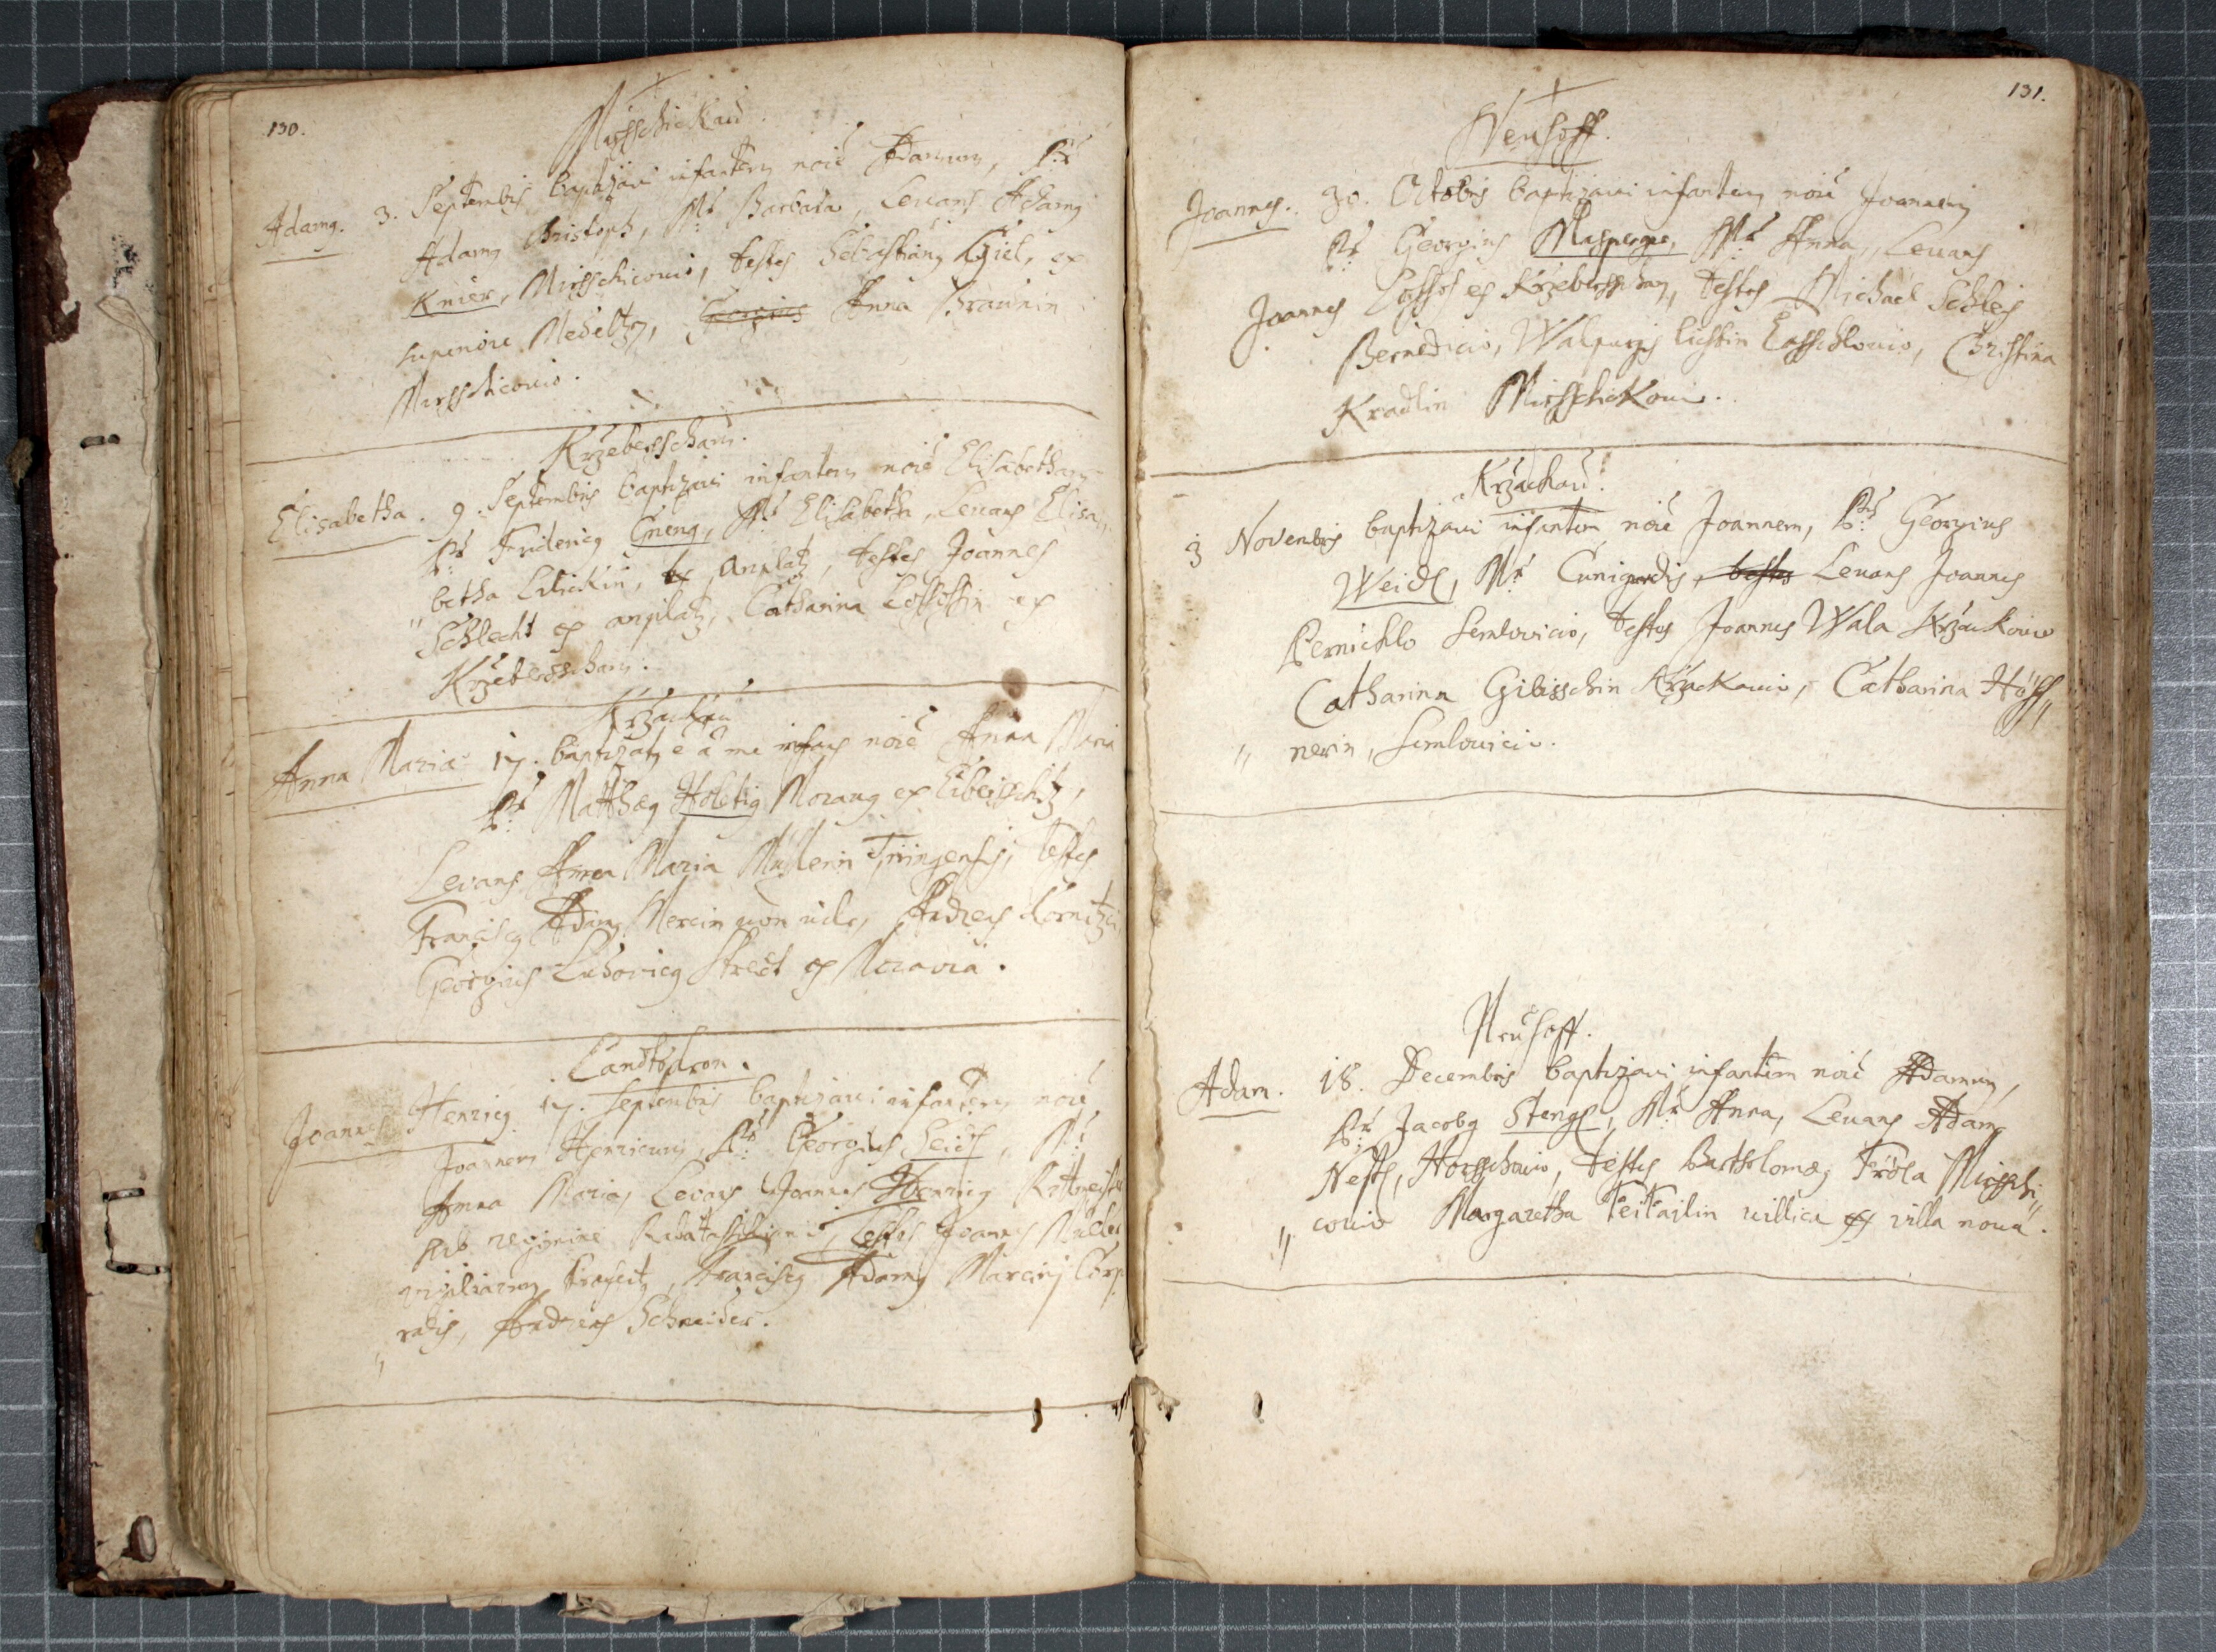 130.
Mirsschickau.
Adamg. 3. Septembris baptizavi infantem noie Adamum, Pr
Adamg Christoph, Mr Barbara, Levans Adamg
Knier, Mirsschicovio, testes Sebastiang Kgiel, ex
superiore Medeltz, Georgius Anna Braunin
Mirsschicovio.
Krzebersscham.
Elisabetha. 9. Septembris baptizavi infantem noie Elisabetham
Pr Fridericg Gneng, Mr Elisabetha, Levans Elisa
betha, ex anplatz, testes Joannes
Schlecht ex anplatz, Catharina ex
Krzebersscham.
Krzackau
Anna Maria 17. baptizatg e a me infans noie Anna Maria
Pr Matthæg Holetig Moravg ex Eibeisschitz,
Levans Anna Maria Müllerin, testes
Franciscg Adamg, Andreas
Georgius Ludovicg ex Moravia.
Landtskron.
Joannes Henricg 17. Septembris baptizavi infantem noie
Joannem Henricum, Pr Georgius Seidl, Mr
Anna Maria, Levans Joannes Henricg
sub regimine, Testes Joannes Müller
, Franciscg Adamg Marcinj Corp
ralis, Andreas Schneider.
131.
Neuhoff.
Joannes. 30. Octobris baptizavi infantem noie Joannem
Pr Georgius Masperger, Mr Anna, Levans
Joannes ex Krzebersscham, testes Michael Schleis
Bernedicio, Walpurgis, Christina
Kradlin Mirsschickovio.
Krzackau.
3 Novembris baptizavi infantem noie Joannem, Pr Georgius
Weidl, Mr Cunigundis, testes Levans Joannes
Pernicklo Semlovicio, testes Joannes Wala Krzackovio
Catharina Gibisschin Krzackovio, Catharina Höff„
„ nerin, Semlovicio.
Neuhoff.
Adam. 18. Decembris baptizavi infantem noie Adamum,
Pr Jacobg Stengl, Mr Anna, Levans Adamg
Nestl, testes Bartholomæg Fröla Mirsschi„
„ covio Margaretha villica ex villa nova.